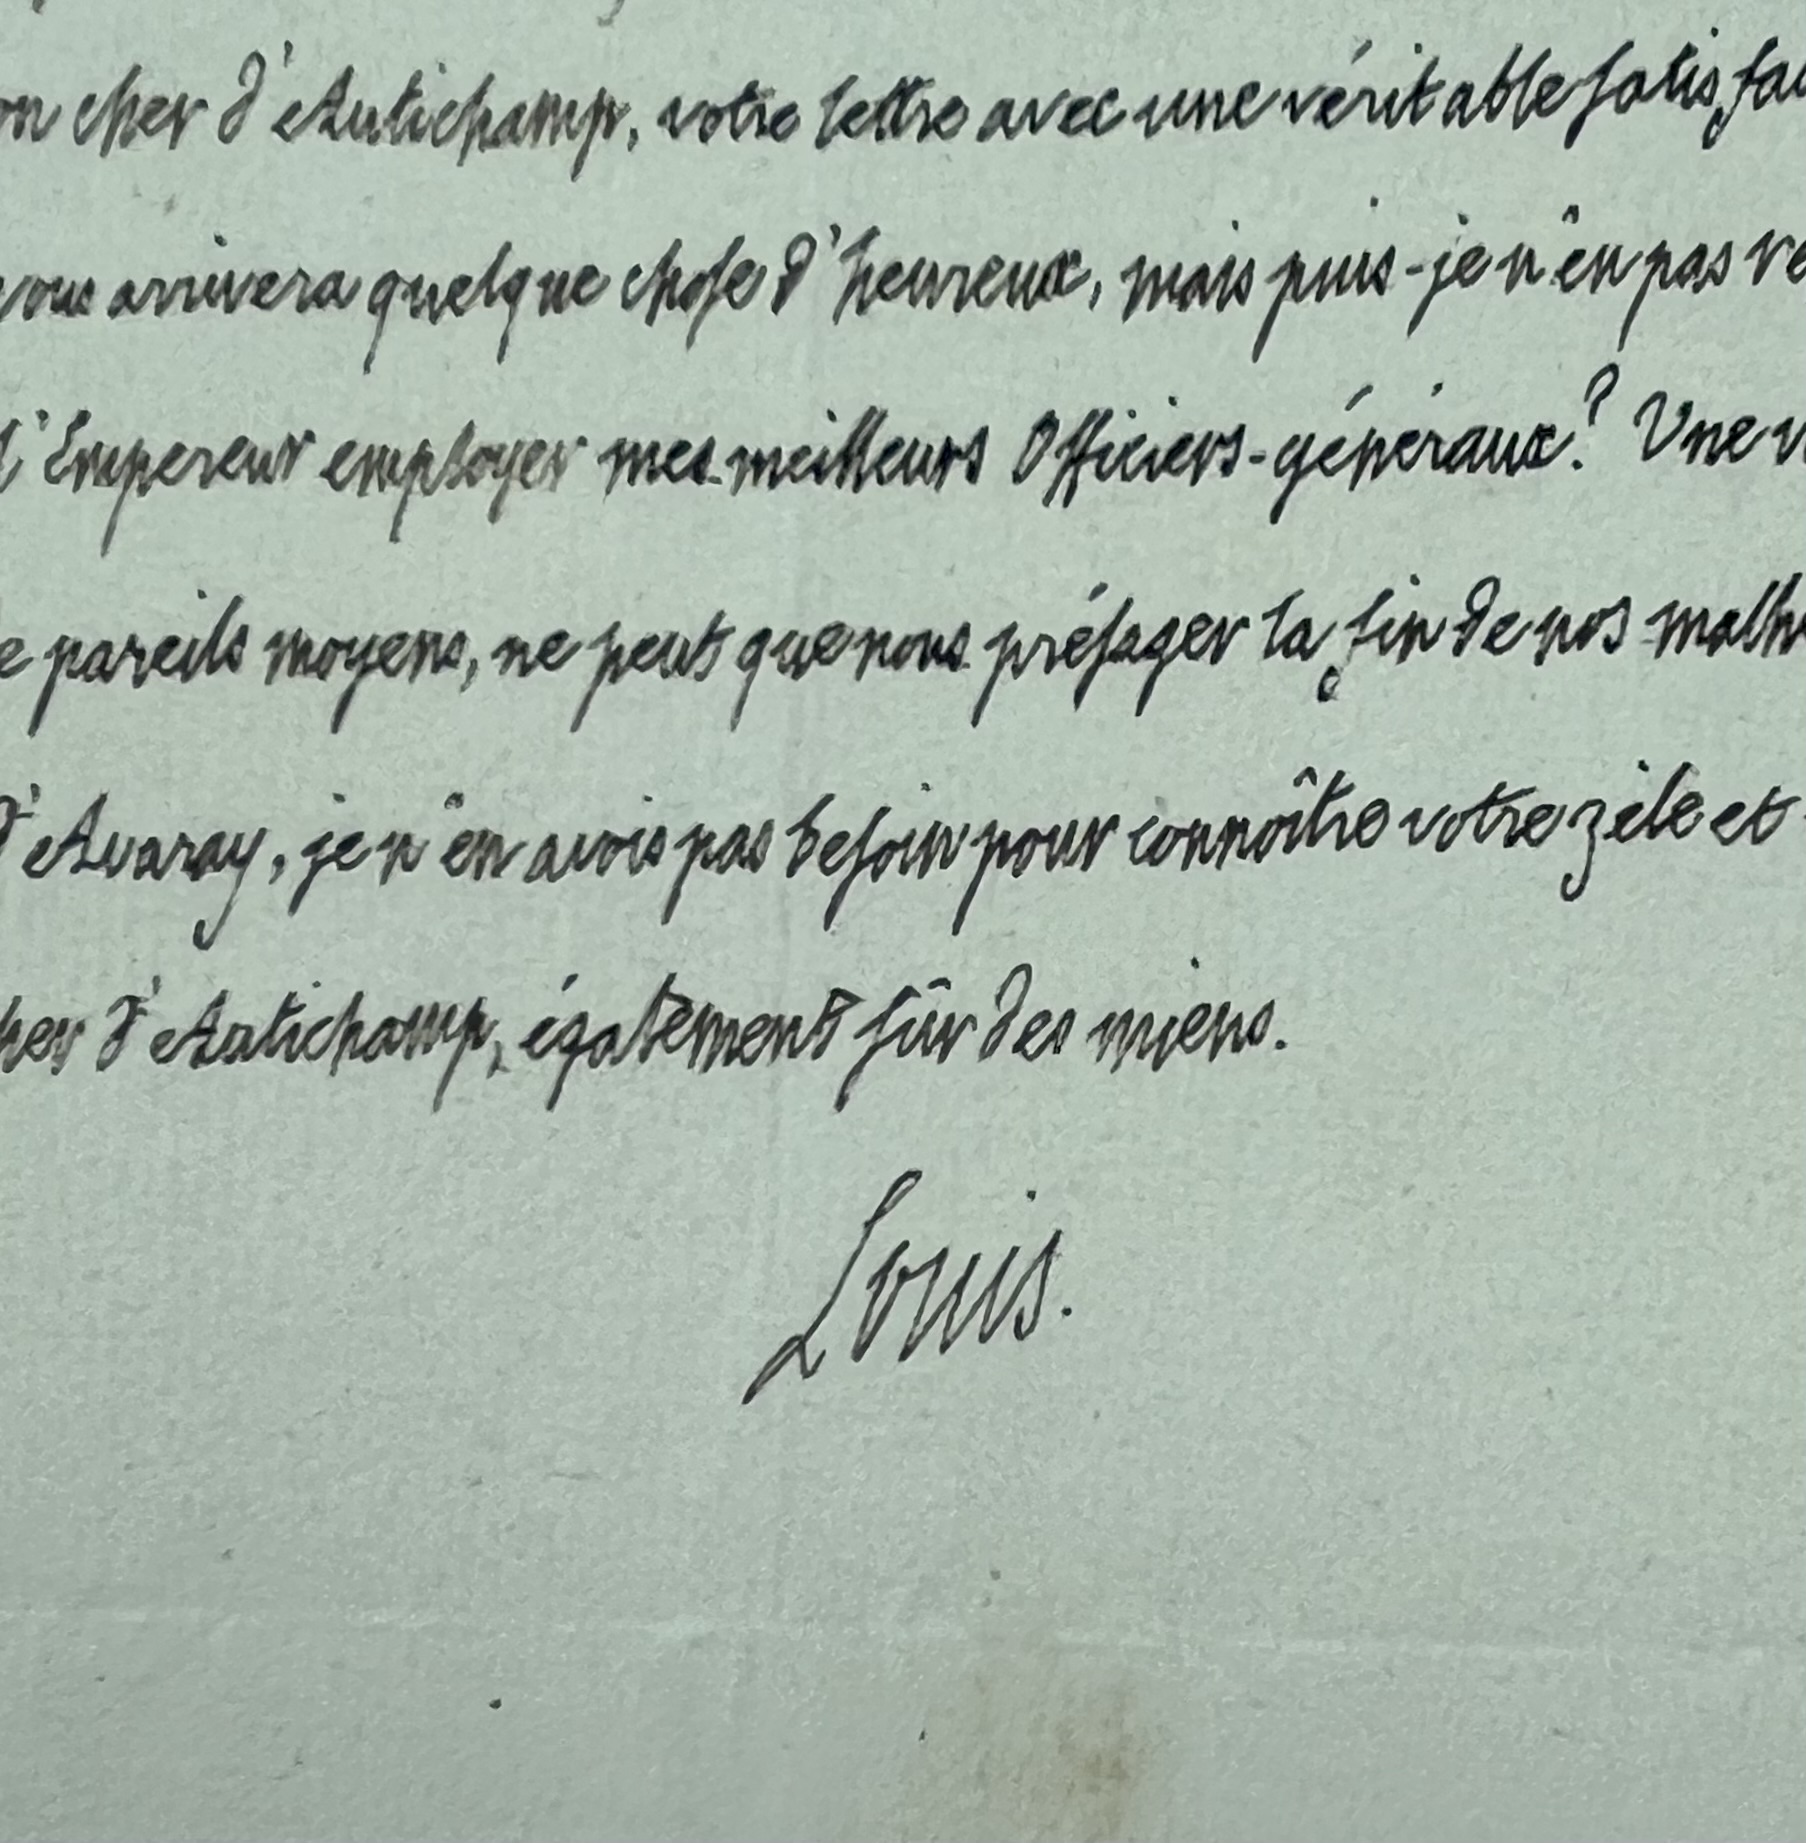 on cher d'Autichamp, votre lettre avec une véritable satisfai
vous arrivera quelque chose d'heureux, mais puis-je n'en pas ve
l'Empereur employer mes meilleurs Officiers-généraux? Une v
e pareils moyens, ne peut que nous présager la fin de nos malh
d'Avaray, je n'en avois pas besoin pour connoître votre zèle et
her d'Autichamp, également sûr des miens.
Louis.